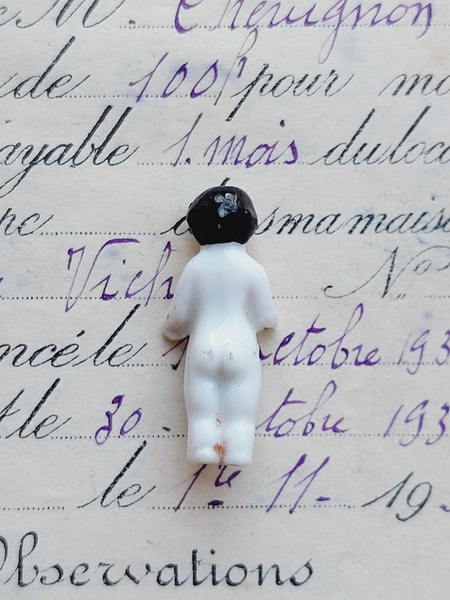 M. Chevignon
de 100f pour mo
ayable 1. mois du loca
smamaiso
Vich N°
ncé le octobre 193
le 30 - tobre 193
le 1re 11- 19
Observations